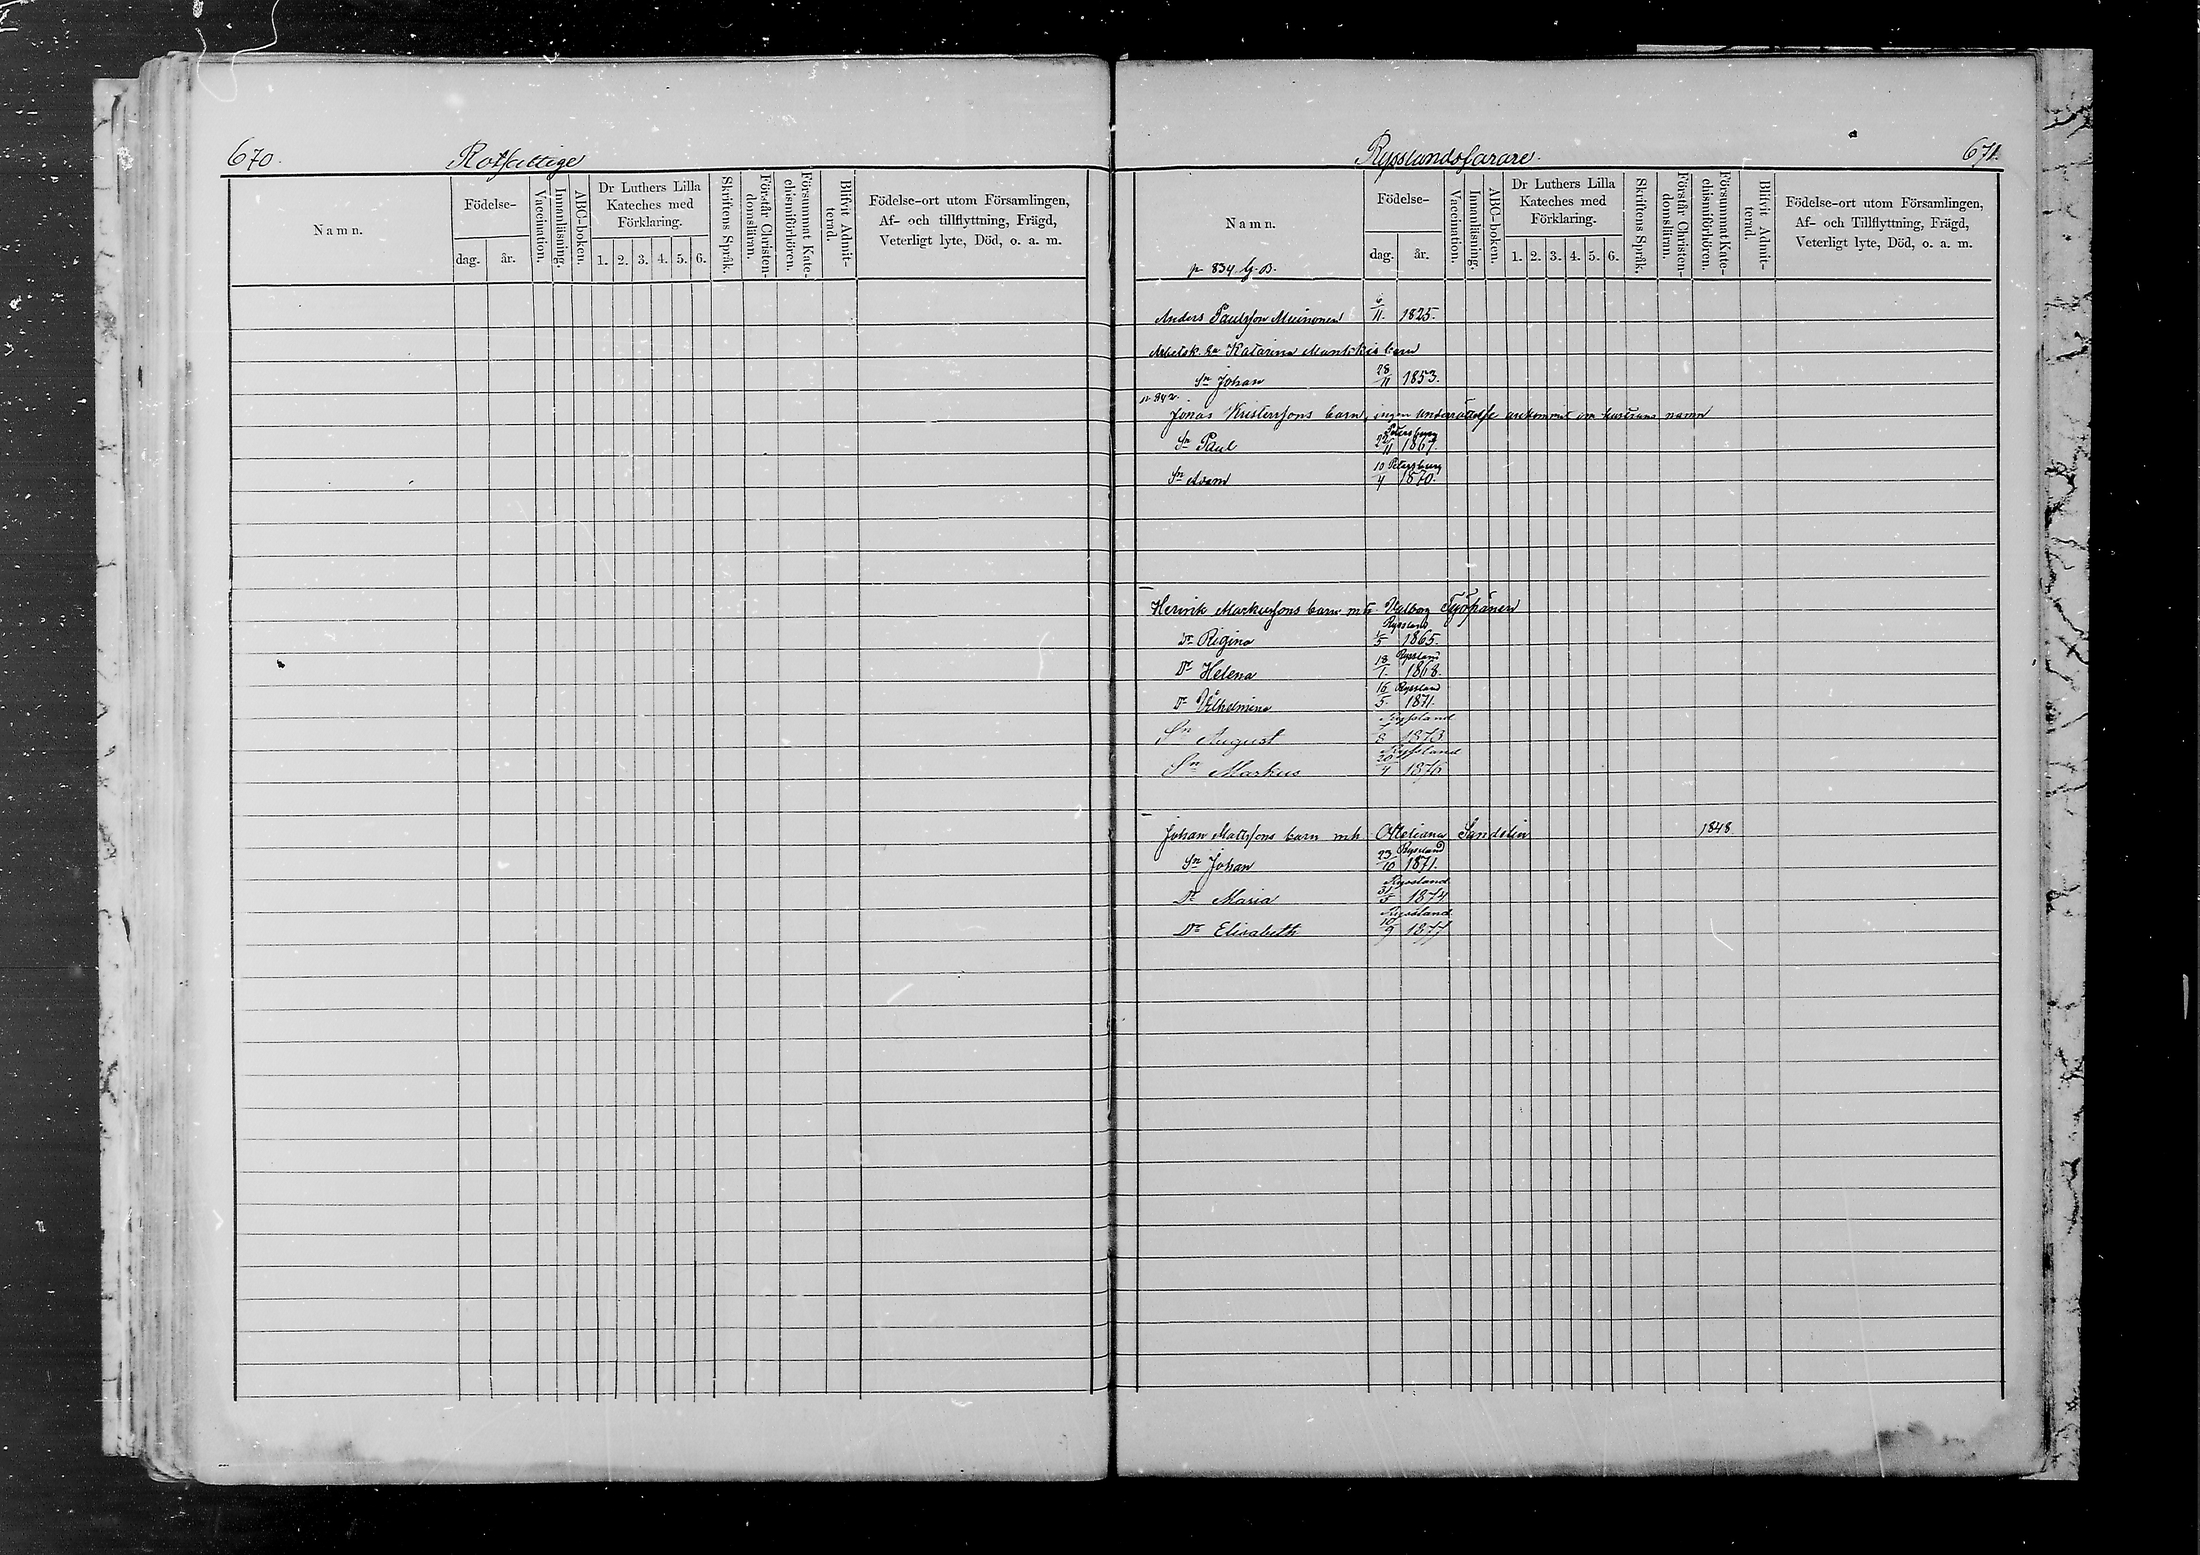 670.
Rotfattige
Namn.
Födelse-
dag.
år.
Vaccination.
Innanläsning.
ABC-boken.
Dr Luthers Lilla
Kateches med
Förklaring.
1. 2. 3. 4. 5. 6.
Skriftens Språk.
Förstår Christen-
domsläran.
Försummat Kate-
chismiförhören.
Blifvit Admit-
terad.
Födelse-ort utom Församlingen,
Af- och tillflyttning, Frägd,
Veterligt lyte, Död, o. a. m.
Rysslandsfarare.
671.
Namn.
p 834 g. B.
Födelse-
dag.
år.
Vaccination.
Innanläsning.
ABC-boken.
Dr Luthers Lilla
Kateches med
Förklaring.
1. 2. 3. 4. 5. 6.
Skriftens Språk.
Förstår Christen-
domsläran.
Försummat Kate-
chismiförhören.
Blifvit Admit-
terad.
Födelse-ort utom Församlingen,
Af- och Tillflyttning, Frägd,
Veterligt lyte, Död, o. a. m.
Anders Paulsson Muinonen 6/11. 1825.
Arbetsk. Katarina Munkkis barn
Sn Johan 28/11 1853.
p. 842.
Jonas Kristerssons barn, ingen underrättelse ankommit om hustruns namn
Petersburg
Sn Paul 22/11 1867.
Petersburg
Sn Adam 10/4 1870.
Henrik Markussons barn mh. Valborg Tyrhänen
Ryssland
Dr Regina 1/5 1865.
Ryssland
Dr Helena 18/1. 1868.
Ryssland
Dr Vilhelmina 16/5. 1871.
Ryssland
Sn August 8 1873
Ryssland
Sn Markus 20/4 1876
Johan Matssons barn mh. Sandelin 1848
Ryssland
Sn Johan 23/10 1871.
Ryssland
Dr Maria 31/5 1874
Ryssland
Dr Elisabeth 10/9 1877